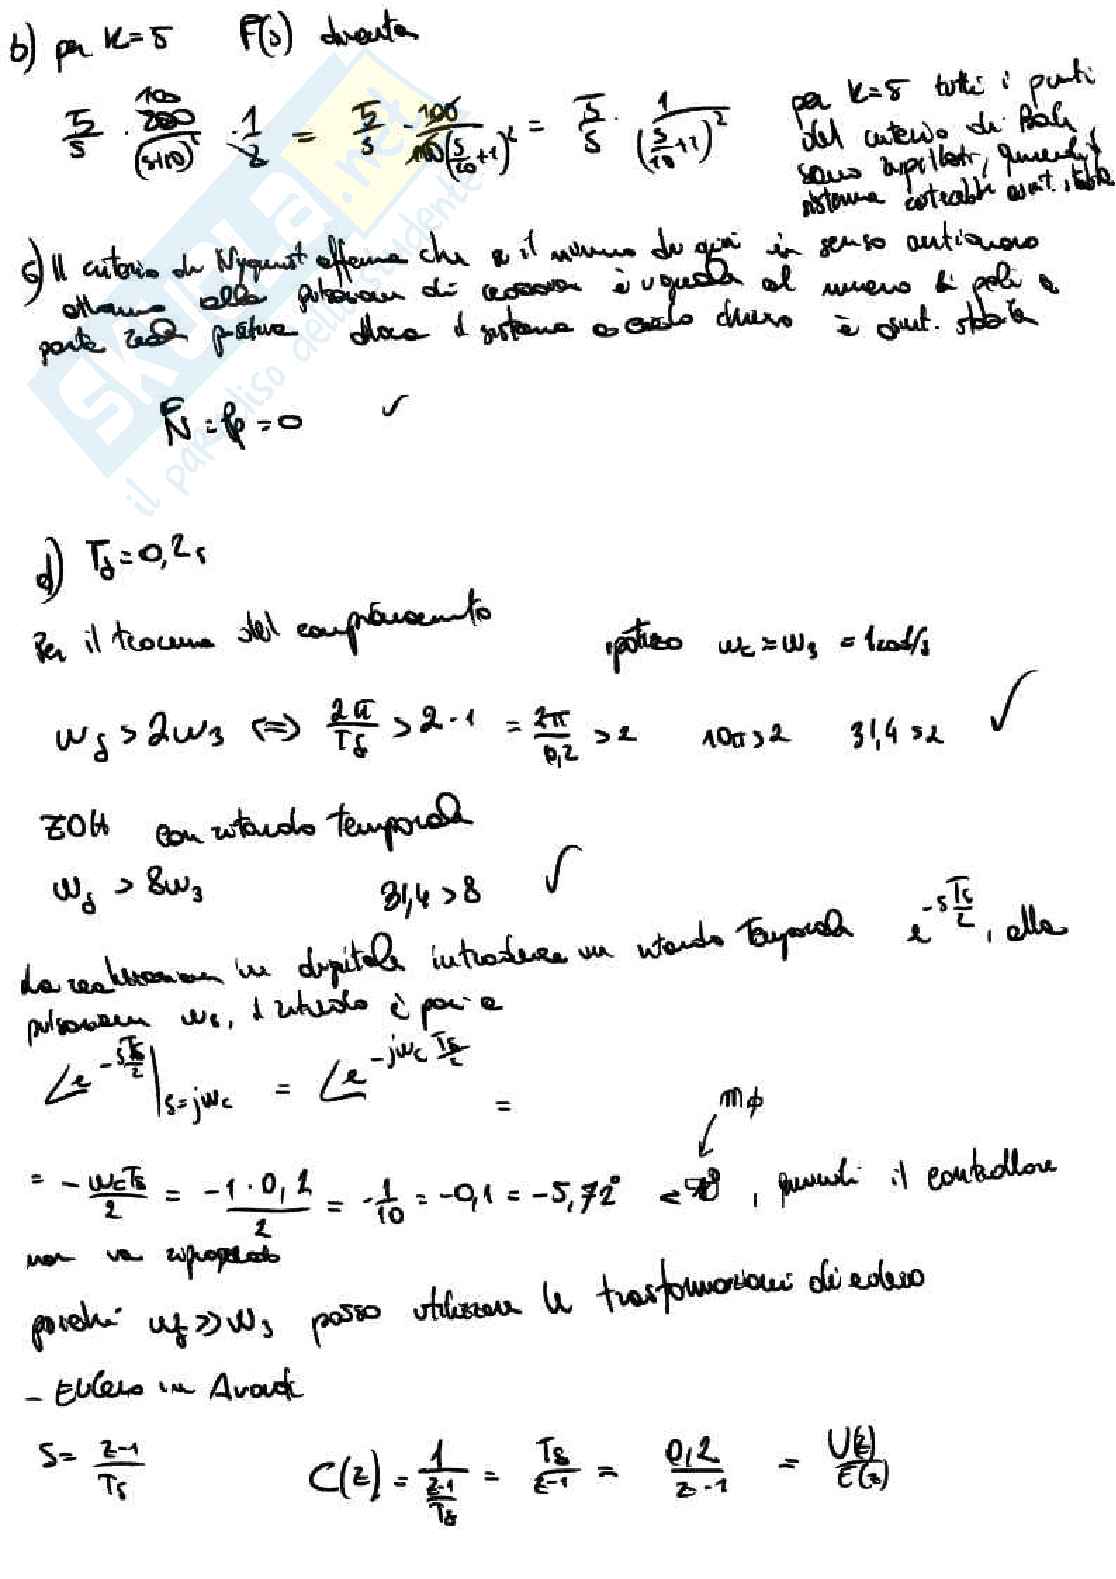 b) per K=5 F(s) diventa
5/s · 100 200/(s+10)² · 1/2 = 5/s · 100/100(s/10+1)² = 5/s · 1/(s/10+1)²
per K=5 tutti i punti
del criterio di Bode
sono rispettati, quindi il
sistema sarebbe asint. stabile
c) Il criterio di Nyquist afferma che se il numero di giri in senso antiorario
attorno alla pulsazione di è uguale al numero di poli a
parte reale positiva allora il sistema a ciclo chiuso è asint. stabile
N = Pp = 0 ✓
d) Ts = 0,2 s
Per il teorema del campionamento
ipotizzo ωc ≃ ω3 = 1 rad/s
ωs > 2ω3 ⇔ 2π/Ts > 2·1 = 2π/0,2 > 2 10π > 2 31,4 > 2 ✓
ZOH con ritardo temporale
ωs > 8ω3 31,4 > 8 ✓
La realizzazione in digitale introduce un ritardo temporale e^(-s Ts/2), alla
pulsazione ωc, il ritardo è pari a
∠e^(-s Ts/2)|s=jωc = ∠e^(-jωc Ts/2) =
mφ
= -ωcTs/2 = -1·0,2/2 = -1/10 = -0,1 = -5,72° < , quindi il controllore
non va riprogettato
poiché ωs >> ω3 posso utilizzare le trasformazioni di eulero
- Eulero in Avanti
s = z-1/Ts C(z) = 1/(z-1/Ts) = Ts/z-1 = 0,2/z-1 = U(z)/E(z)
SKUOLA.net
il paradiso dello studente